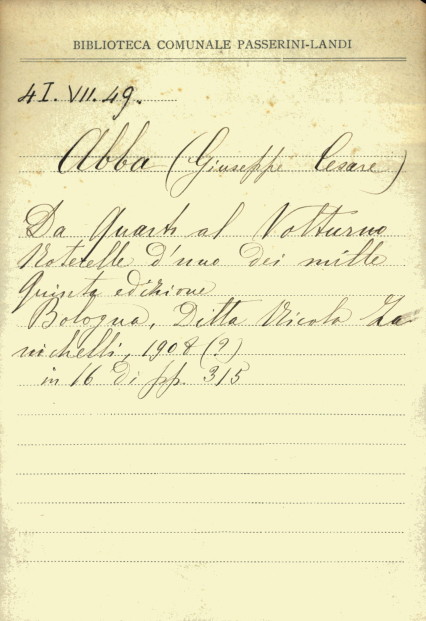 BIBLIOTECA COMUNALE PASSERINI-LANDI
4I. VII. 49.
Abba (Giuseppe Cesare)
Da Quarto al Volturno
Noterelle d'uno dei mille
Quinta edizione
Bologna, Ditta Nicola Za
nichelli, 1908 (?)
in 16 di pp. 315